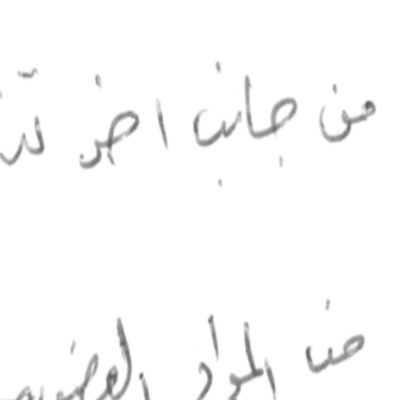 من جانب اخر
من المواد العضوية